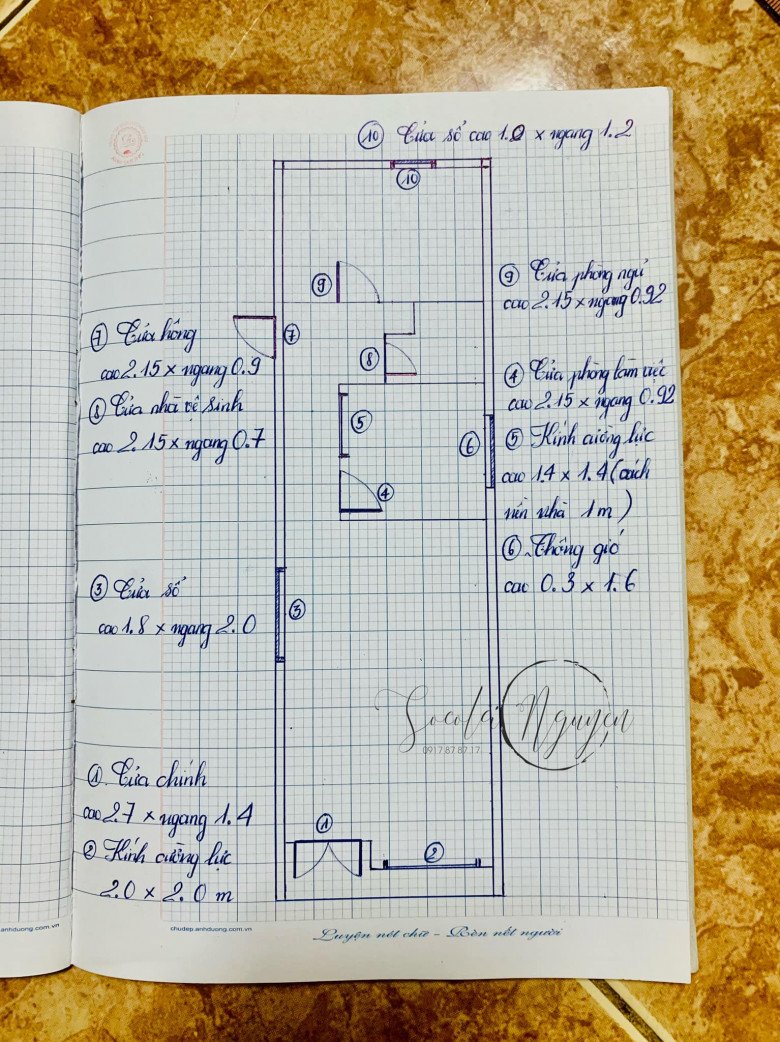 ⑩ Cửa sổ cao 1.0 x ngang 1.2
⑩
⑨
⑨ Cửa phòng ngủ
cao 2.15 x ngang 0.92
⑦
⑦ Cửa hông
cao 2.15 x ngang 0.9
⑧
⑧ Cửa nhà vệ sinh
cao 2.15 x ngang 0.7
④ Cửa phòng làm việc
cao 2.15 x ngang 0.92
⑤
⑥
⑤ Kính cường lực
cao 1.4 x 1.4 (cách
nền nhà 1m)
④
⑥ Thông gió
cao 0.3 x 1.6
③ Cửa sổ
cao 1.8 x ngang 2.0
③
Socola Nguyễn
0917.87.87.17
① Cửa chính
cao 2.7 x ngang 1.4
② Kính cường lực
2.0 x 2.0 m
①
②
anhduong.com.vn
chudep.anhduong.com.vn
Luyện nét chữ - Rèn nết người